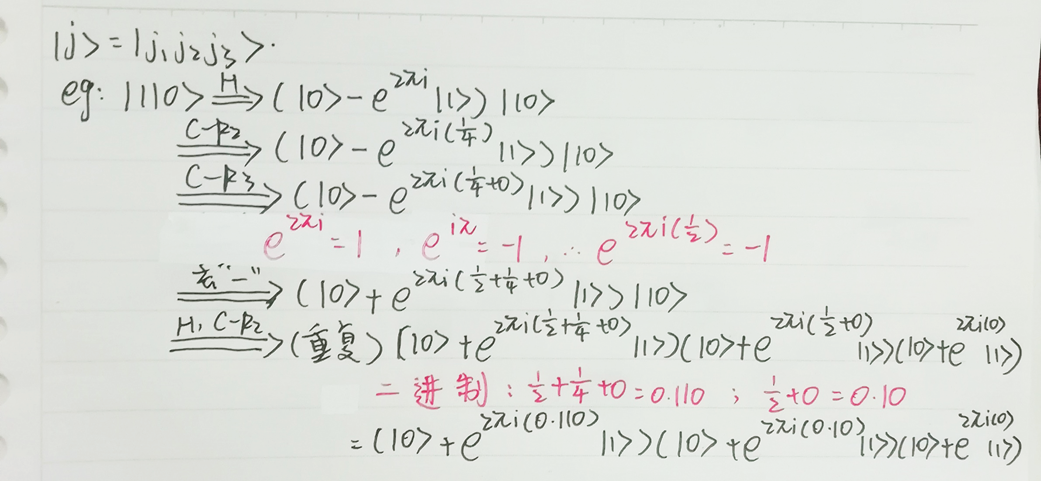 |j> = |j₁j₂j₃>.
eg: |110> =H=> (|0> - e^{2πi}|1>) |10>
=C-R2=> (|0> - e^{2πi(1/4)}|1>) |10>
=C-R3=> (|0> - e^{2πi(1/4+0)}|1>) |10>
e^{2πi} = 1 , e^{iπ} = -1 , ∴ e^{2πi(1/2)} = -1
=去"-"=> (|0> + e^{2πi(1/2+1/4+0)}|1>) |10>
=H, C-R2=> (重复) (|0> + e^{2πi(1/2+1/4+0)}|1>)(|0> + e^{2πi(1/2+0)}|1>)(|0> + e^{2πi(0)}|1>)
二进制: 1/2 + 1/4 + 0 = 0.110 ; 1/2 + 0 = 0.10
= (|0> + e^{2πi(0.110)}|1>)(|0> + e^{2πi(0.10)}|1>)(|0> + e^{2πi(0)}|1>)